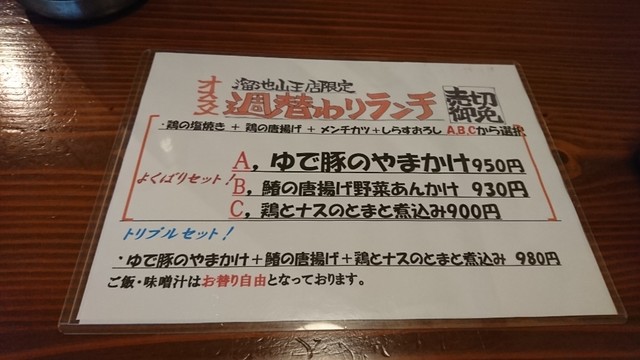 溜池山王店限定
オススメ 週替わりランチ 売切御免
・鶏の塩焼き + 鶏の唐揚げ + メンチカツ+しらすおろし A,B,Cから選択
よくばりセット!
A, ゆで豚のやまかけ950円
B, 鰆の唐揚げ野菜あんかけ 930円
C, 鶏とナスのとまと煮込み900円
トリプルセット!
・ゆで豚のやまかけ+鰆の唐揚げ+鶏とナスのとまと煮込み 980円
ご飯・味噌汁はお替り自由となっております。